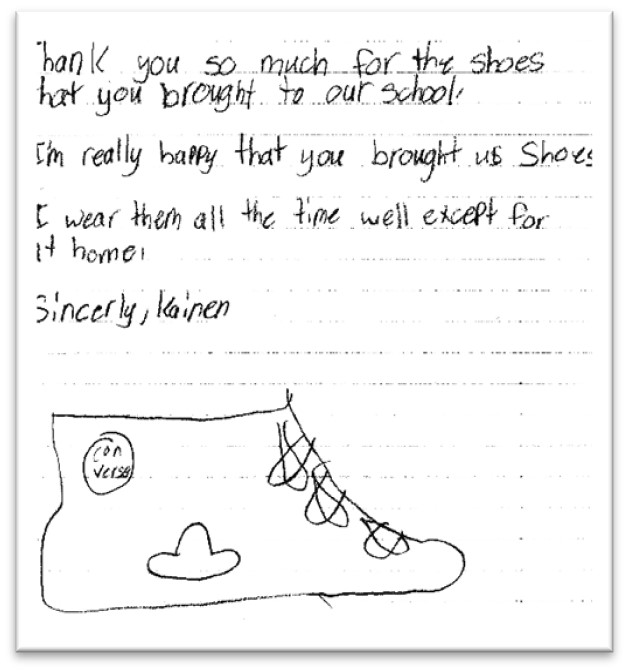 hank you so much for the shoes
hat you brought to our school!
I'm really happy that you brought us Shoes
I wear them all the time well except for
at home.
Sincerly, Kainen
con
verse